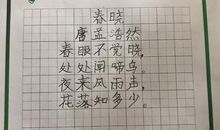 春晓
唐孟浩然
春眼不觉晓，
处处闻啼鸟。
夜来风雨声，
花落知多少。